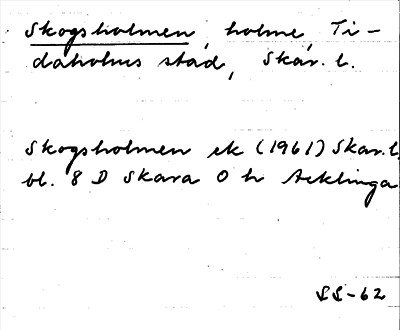 Skogsholmen, holme, Ti-
daholms stad, Skar. l.
Skogsholmen ek (1961) Skar. l.
bl. 8 D Skara O h Acklinga
SS-62